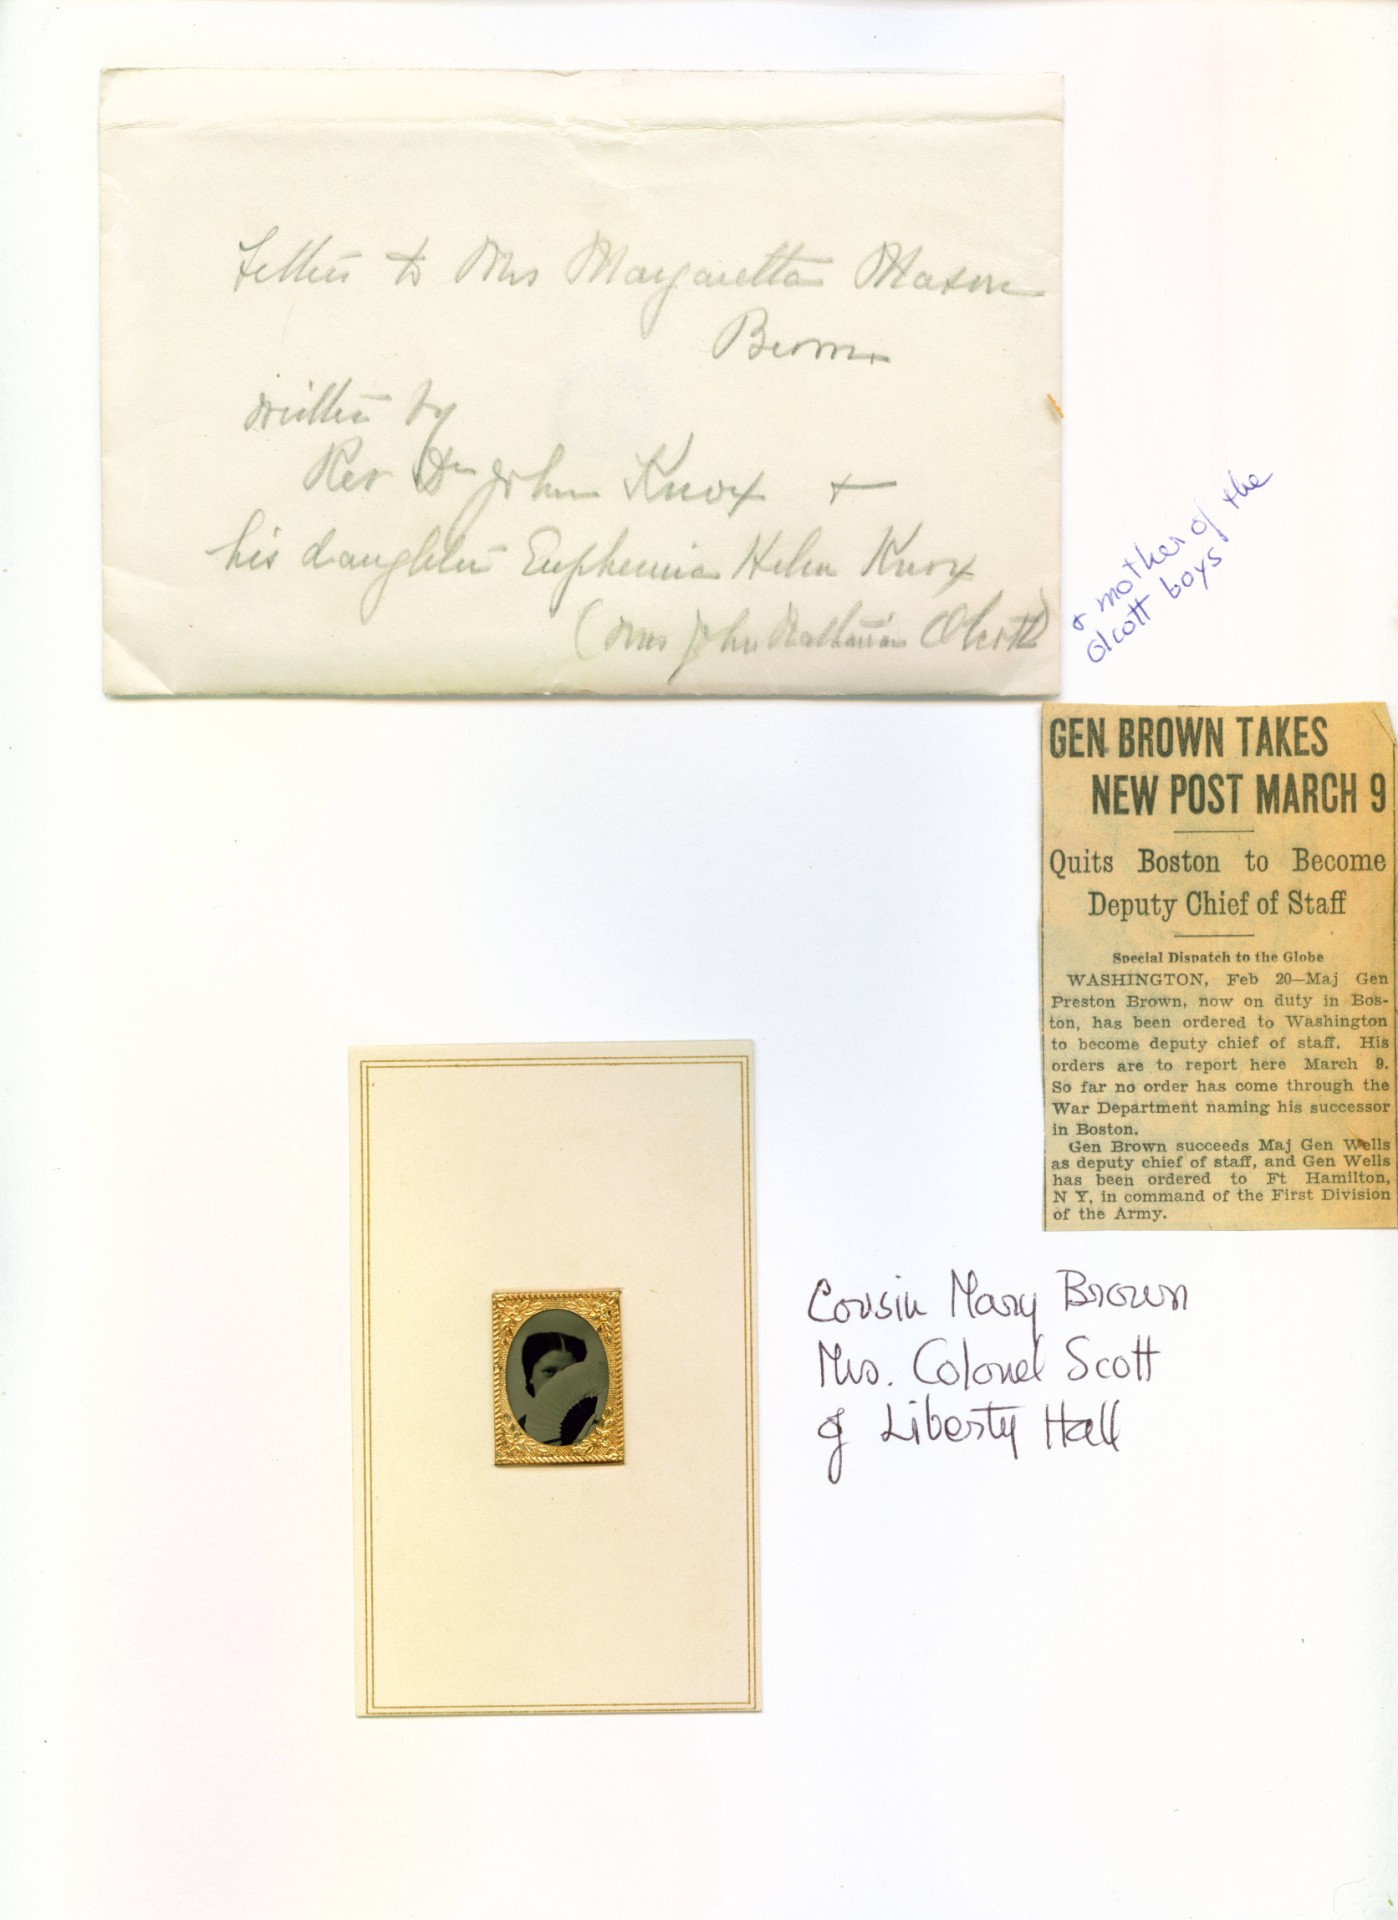 Letters to Mrs Margaretta Mason
Brown
written by
Rev Dr John Knox +
his daughter Euphemia Helen Knox
(Mrs John Nathaniel Olcott)
& mother of the
Olcott boys
GEN BROWN TAKES
NEW POST MARCH 9
Quits Boston to Become
Deputy Chief of Staff
Special Dispatch to the Globe
WASHINGTON, Feb 20—Maj Gen
Preston Brown, now on duty in Bos-
ton, has been ordered to Washington
to become deputy chief of staff. His
orders are to report here March 9.
So far no order has come through the
War Department naming his successor
in Boston.
Gen Brown succeeds Maj Gen Wells
as deputy chief of staff, and Gen Wells
has been ordered to Ft Hamilton,
N Y, in command of the First Division
of the Army.
Cousin Mary Brown
Mrs. Colonel Scott
of Liberty Hall